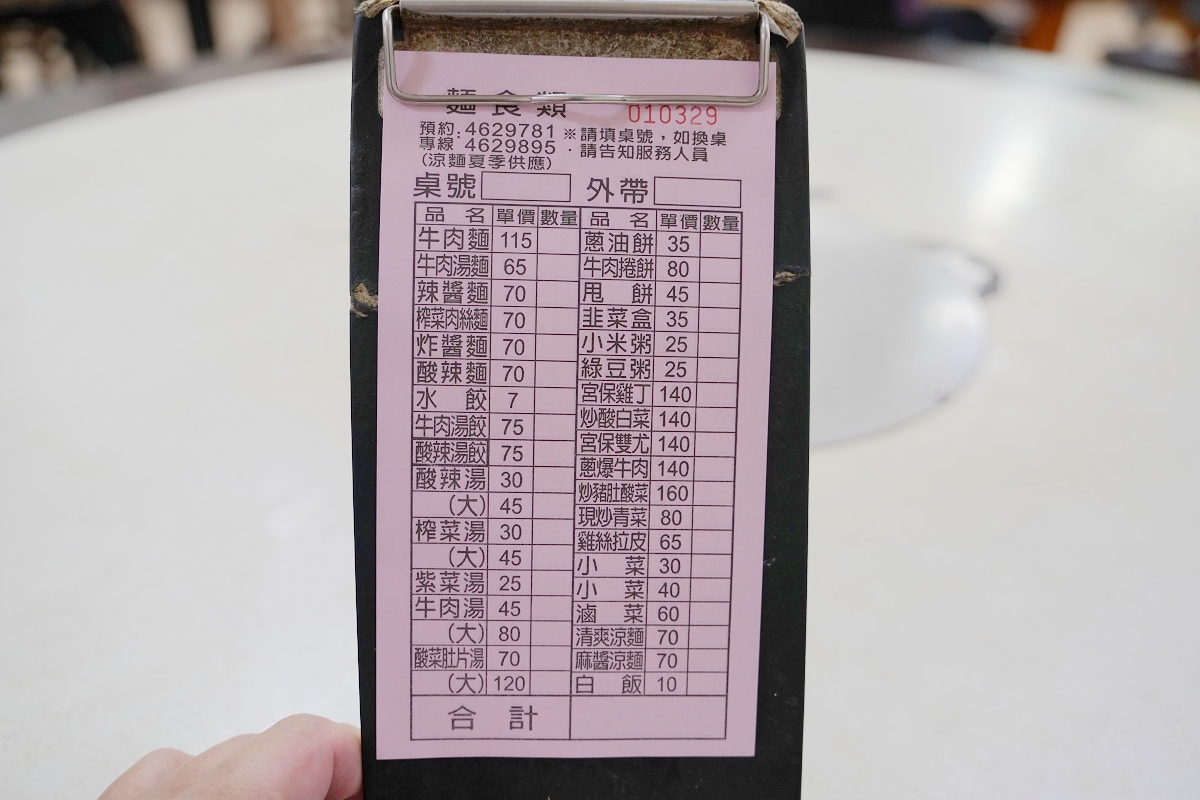 麵食類
010329
預約:4629781 ※請填桌號，如換桌
專線:4629895 ．請告知服務人員
(涼麵夏季供應)
桌號 外帶
品名 單價 數量 品名 單價 數量
牛肉麵 115 蔥油餅 35
牛肉湯麵 65 牛肉捲餅 80
辣醬麵 70 甩餅 45
榨菜肉絲麵 70 韭菜盒 35
炸醬麵 70 小米粥 25
酸辣麵 70 綠豆粥 25
水餃 7 宮保雞丁 140
牛肉湯餃 75 炒酸白菜 140
酸辣湯餃 75 宮保雙尤 140
酸辣湯 30 蔥爆牛肉 140
(大) 45 炒豬肚酸菜 160
榨菜湯 30 現炒青菜 80
(大) 45 雞絲拉皮 65
紫菜湯 25 小菜 30
牛肉湯 45 小菜 40
(大) 80 滷菜 60
酸菜肚片湯 70 清爽涼麵 70
(大) 120 麻醬涼麵 70
白飯 10
合計